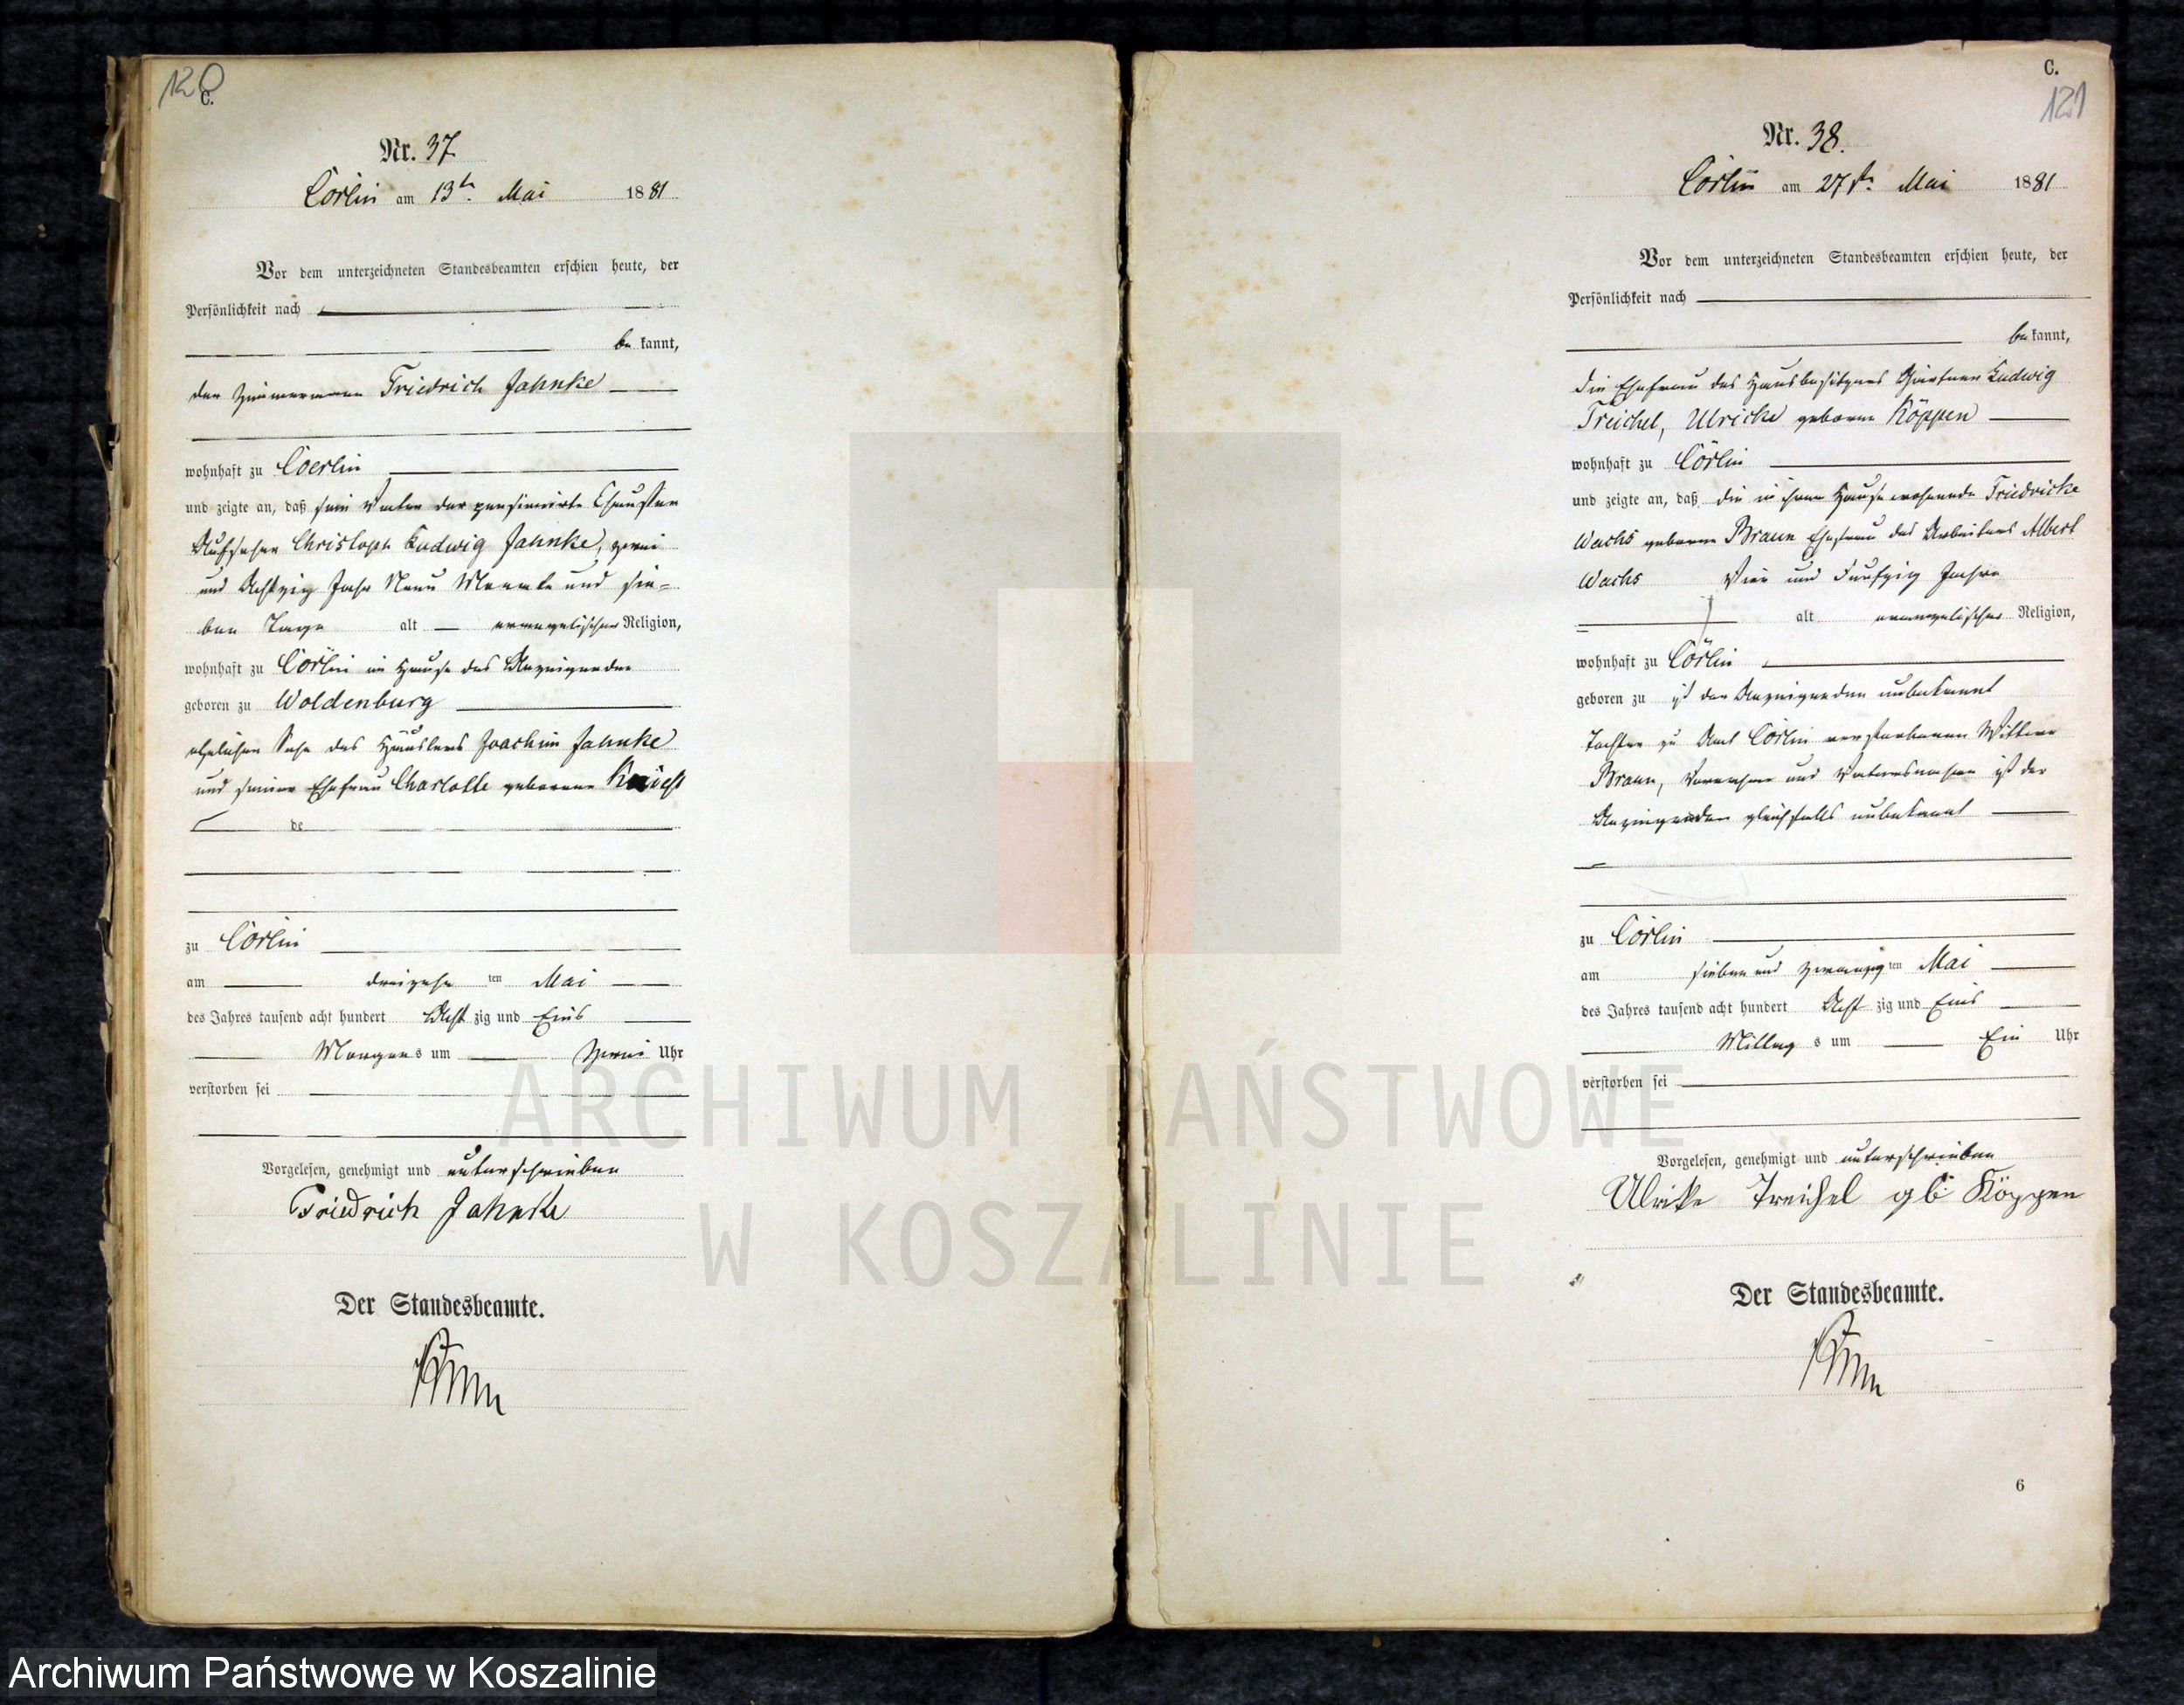 120
C.
Nr. 37
Cörlin am 13ten Mai 1881
Vor dem unterzeichneten Standesbeamten erschien heute, der
Persönlichkeit nach
be kannt,
der Zimmermann Friedrich Jahnke
wohnhaft zu Coerlin
und zeigte an, daß sein Vater der pensionirte Chaussee
Aufseher Christoph Ludwig Jahnke, zwei
und Achtzig Jahr Neun Monate und sie-
ben Tage alt evangelischer Religion,
wohnhaft zu Cörlin im Hause des Anzeigenden
geboren zu Woldenburg
ehelicher Sohn des Häuslers Joachim Jahnke
und seiner Ehefrau Charlotte geborene
de
zu Cörlin
am dreizehn ten Mai
des Jahres tausend acht hundert Acht zig und Eins
Morgens um Zwei Uhr
verstorben sei
Vorgelesen, genehmigt und unterschrieben
Friedrich Jahnke
Der Standesbeamte.
C.
121
Nr. 38.
Cörlin am 27ten Mai 1881
Vor dem unterzeichneten Standesbeamten erschien heute, der
Persönlichkeit nach
be kannt,
die Ehefrau des Hausbesitzers Gärtner Ludwig
Treichel, Ulricke geborne Köppen
wohnhaft zu Cörlin
und zeigte an, daß die in ihrem Hause wohnende Friedricke
Wachs geborne Braun Ehefrau des Arbeiters Albert
Wachs Vier und Funfzig Jahre
alt evangelischer Religion,
wohnhaft zu Cörlin
geboren zu ist der Anzeigenden unbekannt
Tochter zu Amt Cörlin verstorbenen Wittwe
Braun, Vorname und Vatersname ist der
Anzeigenden gleichfalls unbekannt
zu Cörlin
am sieben und zwanzig ten Mai
des Jahres tausend acht hundert Acht zig und Eins
Mittags um Ein Uhr
verstorben sei
Vorgelesen, genehmigt und unterschrieben
Ulrike Treichel gb: Köppen
Der Standesbeamte.
6
ARCHIWUM PAŃSTWOWE
W KOSZALINIE
Archiwum Państwowe w Koszalinie